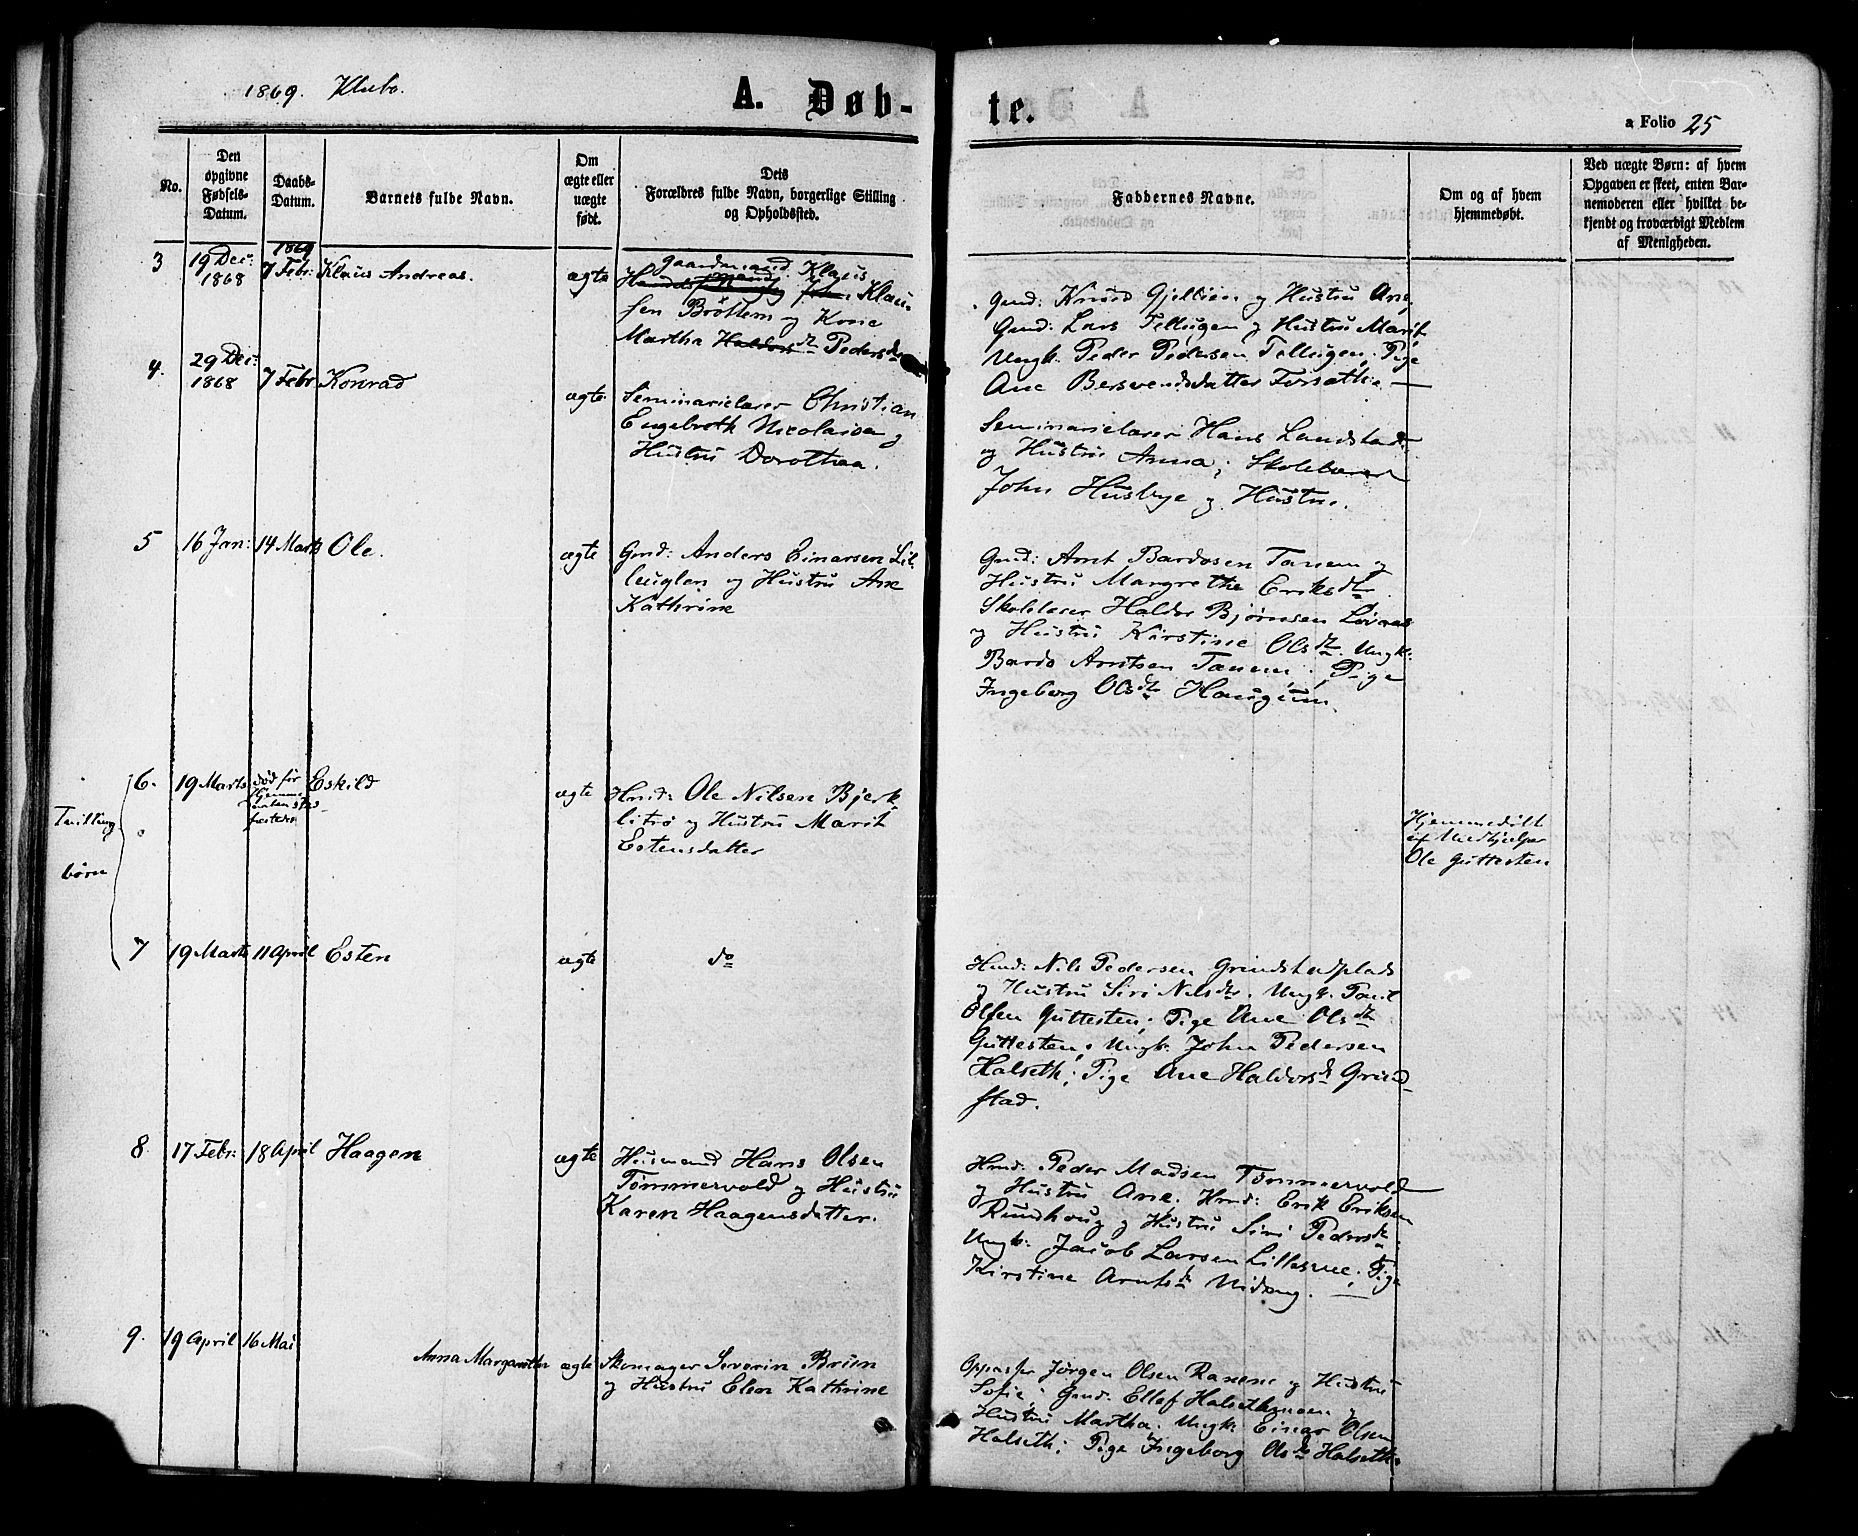 1869. Klæbo.
A. Døb-
te.
a Folio 25
No.
Den
opgivne
Fødsels-
Datum.
Daabs-
Datum.
Barnets fulde Navn.
Om
ægte eller
uægte
født.
Dets
Forældres fulde Navn, borgerlige Stilling
og Opholdssted.
Faddernes Navne.
Om og af hvem
hjemmedøbt.
Ved uægte Børn: af hvem
Opgaven er skeet, enten Bar-
nemoderen eller hvilket be-
kjendt og troværdigt Medlem
af Menigheden.
3
19 Dec:
1868
1869
7 Febr:
Klaus Andreas.
ægte
Gaardmand. Klaus
Klau-
sen Bröttem og Kone
Martha Haldorsdtr Pedersdtr
Gmd: Knud Gjellien og Hustru Ane,
Gmd: Lars Tellugen og Hustru Marit,
Ungk. Peder Pedersen Tellugen; Pige
Ane Bersvendsdatter Forsæth. —
4.
29 Dec:
1868
7 Febr
Konrad
ægte
Seminarielærer Christian
Engebroth Nicolaisen og
Hustru Dorothea.
Seminarielærer Hans Landstad
og Hustru Anna; Skolelærer
John Husbye og Hustru.
5
16 Jan:
14 Marts
Ole.
ægte
Gmd: Anders Einarsen Lil-
leuglen og Hustru Ane
Kathrine
Gmd: Arnt Bardosen Tanem og
Hustru Margrethe Eriksdtr.
Skolelærer Haldor Bjørnsen Løvaas
og Hustru Kirstine Olsdtr. Ungk:
Bardo Arntsen Tanem; Pige
Ingeborg Olsdtr Haugum.
Tvilling
børn
6.
19 Marts
død før
Hjemme
daaben stad-
fæstedes
Eskild
ægte
Hmd: Ole Nilsen Bjerk-
litrø og Hustru Marit
Estensdatter
Hjemmedøbt
af Medhjelper
Ole Guttesten
7
19 Marts
11 April
Esten
ægte
do
Hmd: Nils Pedersen Grindstadplads
og Hustru Siri Nilsdtr. Ungk. Paul
Olsen Guttesten; Pige Ane Olsdtr
Guttesten; Ungk: John Pedersen
Halseth; Pige Ane Haldorsdtr Grind-
stad.
8
17 Febr:
18 April
Haagen
ægte
Husmand Hans Olsen
Tømmervold og Hustru
Karen Haagensdatter.
Hmd: Peder Madsen Tømmervold
og Hustru Ane. Hmd: Erik Eriksen
Rundhoug og Hustru Siri Pedersdtr.
Ungk: Jacob Larsen Lillesve; Pige
Kirstine Arntsdtr Nideng. —
9.
19 April
16 Mai
Anna Margarethe
ægte
Skomager Severin Bruun
og Hustru Elen Kathrine
Oppasser Jørgen Olsen Ranem og Hustru
Sofie; Gmd: Ellef Halsethmoen og
Hustru Martha. Ungk: Einar Olsen
Halseth; Pige Ingeborg Olsdtr Halseth.